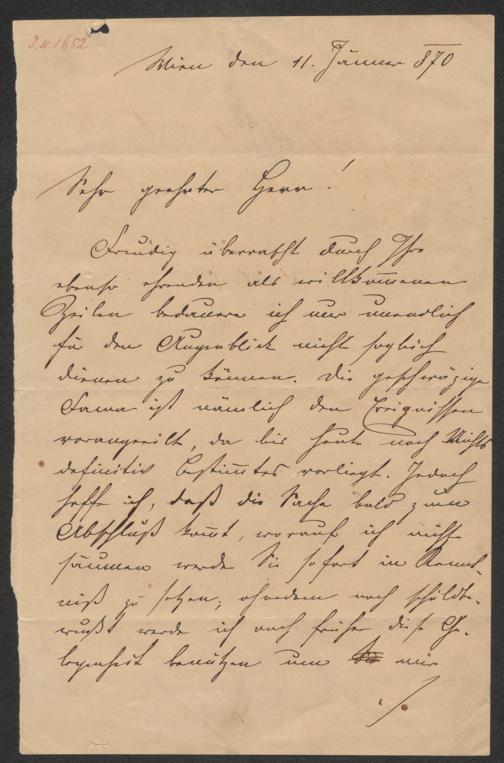 J.N. 1652
Wien den 11. Jänner 870
Sehr geehrter Herr!
Freudig überrascht durch Ihre
ebenso ehrenden als willkom̅enen
Zeilen bedauere ich nur unendlich
für den Augenblick nicht sogleich
dienen zu können. Die geschwäzige
Fama ist nämlich den Ereignissen
vorangeeilt, da bis heute noch Nichts
definitiv bestim̅tes vorliegt. Jedoch
hoffe ich, daß die Sache bald zum
Abschluß kom̅t, worauf ich nicht
säumen werde Sie sofort in Kennt-
niß zu setzen;
werde ich noch früher diese Ge-
legenheit benützen um mir
./.